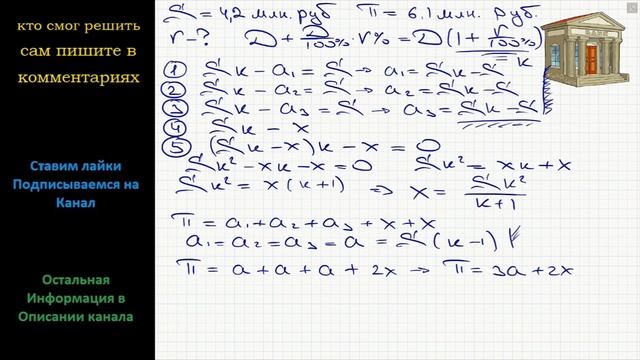 кто смог решить
сам пишите в
комментариях
Ставим лайки
Подписываемся на
Канал
Остальная
Информация в
Описании канала
S = 4,2 млн. руб П = 6,1 млн. руб.
r - ? D + D/100% · r% = D(1 + r/100%)
= k
① Sk - a₁ = S → a₁ = Sk - S
② Sk - a₂ = S → a₂ = Sk - S
③ Sk - a₃ = S → a₃ = Sk - S
④ Sk - x
⑤ (Sk - x)k - x = 0
Sk² - xk - x = 0 Sk² = xk + x
Sk² = x(k+1) ⇒ x = Sk²/(k+1)
П = a₁ + a₂ + a₃ + x + x
a₁ = a₂ = a₃ = a = S(k-1)
П = a + a + a + 2x → П = 3a + 2x